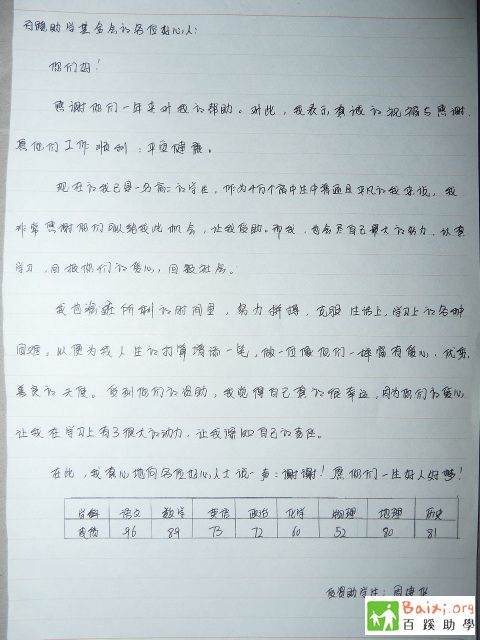 百蹊助学基金会的各位好心人:
你们好!
感谢你们一年来对我的帮助。对此,我表示真诚的祝福与感谢.
愿你们工作顺利,平安健康。
现在的我已是一名高二的学生,作为千万个高中生中普通且平凡的我来说,我
非常感谢你们可以给我此机会,让我受助。而我,也会尽自己最大的努力,认真
学习,回报你们的爱心,回报社会。
我也将在所剩的时间里,努力拼搏,克服生活上,学习上的各种
困难。以便为我人生的打算增添一笔。做一位像你们一样富有爱心,优秀,
善良的天使。受到你们的资助,我觉得自己真的很幸运,因为你们的爱心
让我在学习上有了很大的动力,让我深知自己的责任。
在此,我真心地向各位好心人士说一声:谢谢!愿你们一生好人好梦!
学科 语文 数学 英语 政治 化学 物理 地理 历史
成绩 96 89 73 72 60 52 80 81
受资助学生:周
Baixi.org
百蹊助學